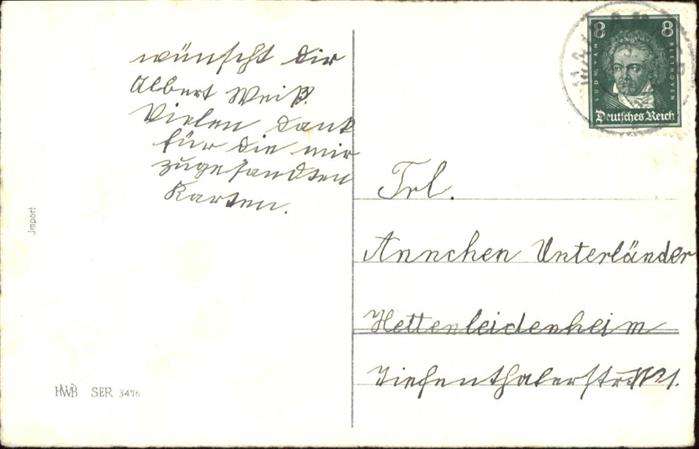 wünscht Dir
Albert Weiß.
Vielen Dank
für die mir
zugesandten
Karten.
Frl.
Annchen Unterländer
Hettenleidenheim
Tiefenthalerstr.
Import
HWB SER 3416
8 8
Deutsches Reich